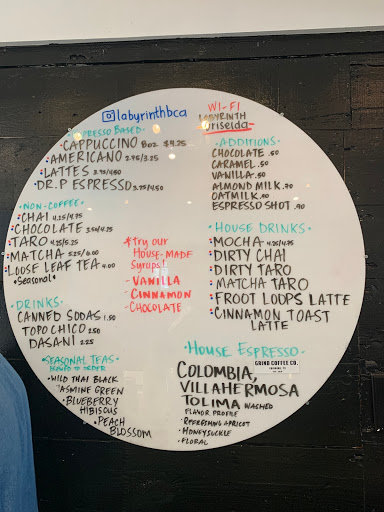 @labyrinthbca
WI-FI
LABYRINTH
Griselda
ESPRESSO BASED-
CAPPUCCINO 8oz $4.25
·AMERICANO 2.75/3.25
·LATTES 3.75/4.50
·DR. P ESPRESSO 3.75/4.50
·NON-COFFEE·
·CHAI 4.25/4.75
·CHOCOLATE 3.50/4.25
·TARO 4.25/5.25
·MATCHA 5.25/6.00
·LOOSE LEAF TEA 4.00
·Seasonal·
·DRINKS·
CANNED SODAS 1.50
TOPO CHICO 2.50
DASANI 2.25
·SEASONAL TEAS
BREWED TO ORDER
·WILD THAI BLACK
·JASMINE GREEN
·BLUEBERRY
HIBISCUS
·PEACH
BLOSSOM
*try our
HOUSE-MADE
Syrups!
-VANILLA
-CINNAMON
-CHOCOLATE
·ADDITIONS·
CHOCOLATE .50
CARAMEL .50
VANILLA .50
ALMOND MILK .90
OATMILK .90
ESPRESSO SHOT .90
·HOUSE DRINKS·
·MOCHA 4.25/4.75
·DIRTY CHAI
·DIRTY TARO
·MATCHA TARO
·FROOT LOOPS LATTE
·CINNAMON TOAST
LATTE
·House Espresso·
GRIND COFFEE CO.
COLOMBIA,
VILLAHERMOSA
TOLIMA WASHED
FLAVOR PROFILE
·REFRESHING APRICOT
·HONEYSUCKLE
·FLORAL